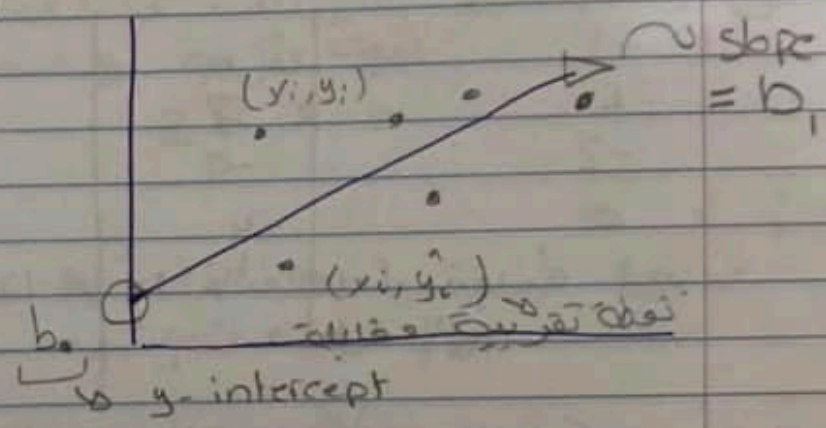 slope
= b₁
(xi, yi)
(xi, ŷi)
نقطة تقريبية مقابلة
b₀
y-intercept